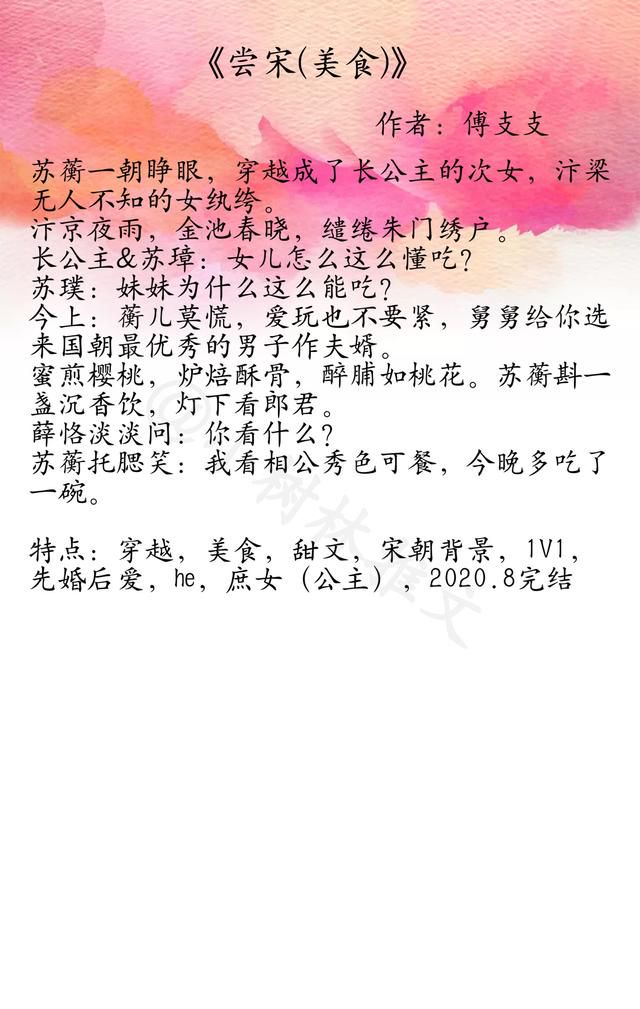 《尝宋(美食)》
作者：傅支支
苏蘅一朝睁眼，穿越成了长公主的次女，汴梁
无人不知的女纨绔。
汴京夜雨，金池春晓，缱绻朱门绣户。
长公主&苏璋：女儿怎么这么懂吃？
苏璞：妹妹为什么这么能吃？
今上：蘅儿莫慌，爱玩也不要紧，舅舅给你选
来国朝最优秀的男子作夫婿。
蜜煎樱桃，炉焙酥骨，醉脯如桃花。苏蘅斟一
盏沉香饮，灯下看郎君。
薛恪淡淡问：你看什么？
苏蘅托腮笑：我看相公秀色可餐，今晚多吃了
一碗。
特点：穿越，美食，甜文，宋朝背景，1V1，
先婚后爱，he，庶女（公主），2020.8完结